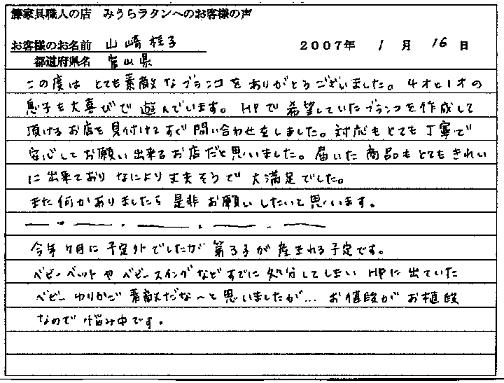 籐家具職人の店　みうらラタンへのお客様の声
お客様のお名前　山崎桂子　2007年　1月　16日
都道府県名　富山県
この度は とても素敵なブランコをありがとうございました。4才と1才の
息子も大喜びで 遊んでいます。HPで 希望していたブランコを作成して
頂けるお店を見付けてすぐ問い合わせをしました。対応もとても丁寧で
安心してお願い出来るお店だと思いました。届いた商品もとてもきれい
に出来ており なにより丈夫そうで 大満足でした。
また何かありましたら 是非お願いしたいと思います。
今年7月に予定外でしたが 第3子が産まれる予定です。
ベビーベットやベビースイングなどすでに処分してしまい HPに出ていた
ベビーゆりかご素敵だな〜と思いましたが... お値段がお値段
なので悩み中です。